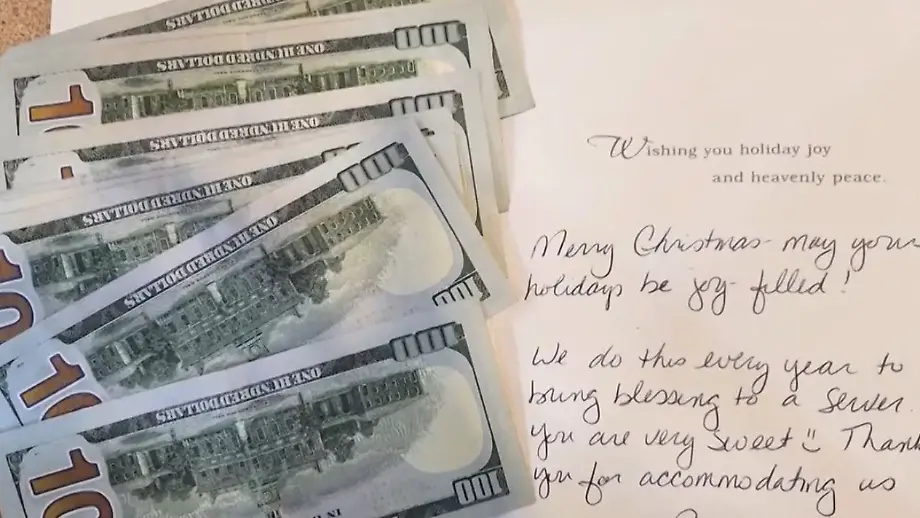 ONE HUNDRED DOLLARS
100
ONE HUNDRED DOLLARS
1
100
ONE HUNDRED DOLLARS
100
ONE HUNDRED DOLLARS
10
100
ONE HUNDRED DOLLARS
10
100
100
ONE HUNDRED DOLLARS
10
100
Wishing you holiday joy
and heavenly peace.
Merry Christmas - may your
holidays be joy-filled!
We do this every year to
bring blessing to a server.
You are very sweet Thank
you for accommodating us